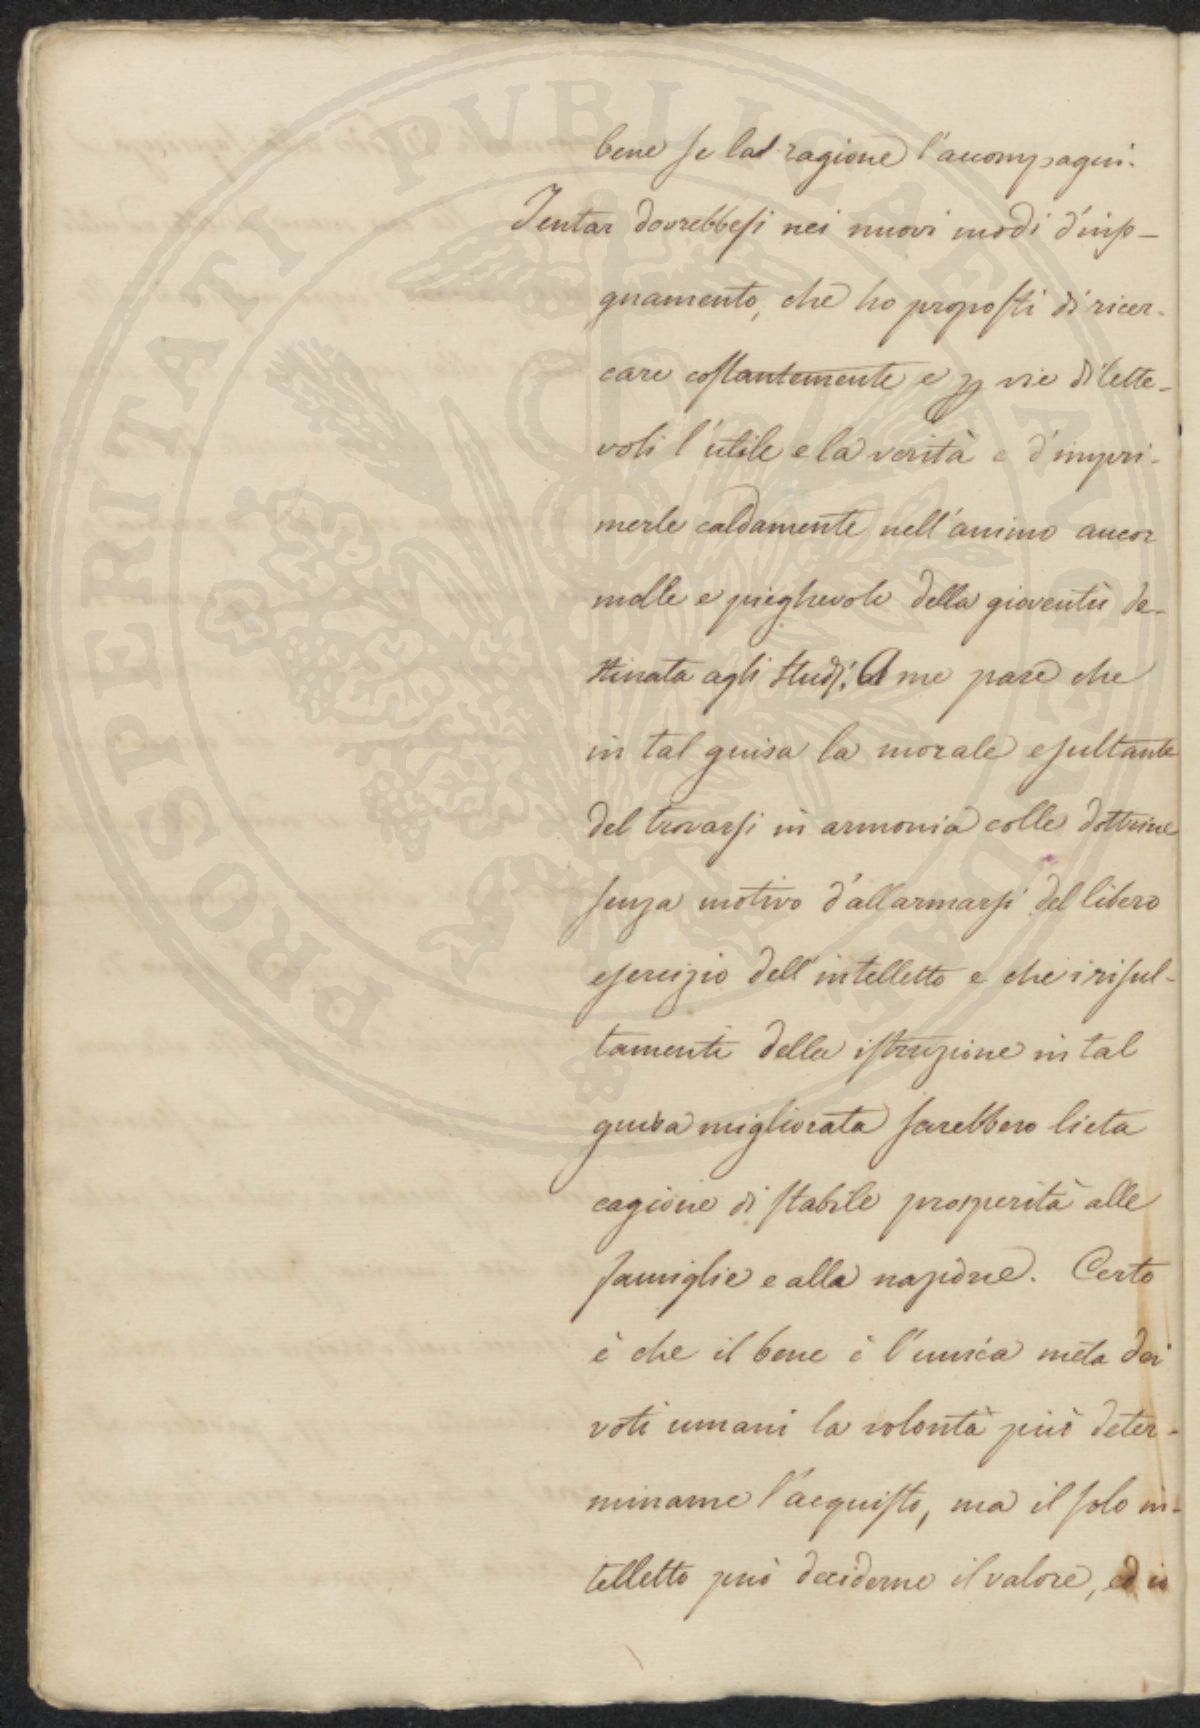 PROSPERITATI PUBLICAE AUGENDAE
bene se la ragione l'accompagni.
Tentar dovrebbesi nei nuovi modi d'inse-
gnamento, che ho proposti di ricer-
care costantemente e p vie dilette-
voli l'utile e la verità e d'impri-
merle caldamente nell'animo ancor
molle e pieghevole della gioventù de-
stinata agli studj. A me pare che
in tal guisa la morale esultante
del trovarsi in armonia colle dottrine
senza motivo d'allarmarsi del libero
esercizio dell'intelletto e che i risul-
tamenti della istruzione in tal
guisa migliorata sarebbero lieta
cagione di stabile prosperità alle
famiglie e alla nazione. Certo
è che il bene è l'unica meta dei
voti umani la volontà può deter-
minarne l'acquisto, ma il solo in-
telletto può deciderne il valore, ed io